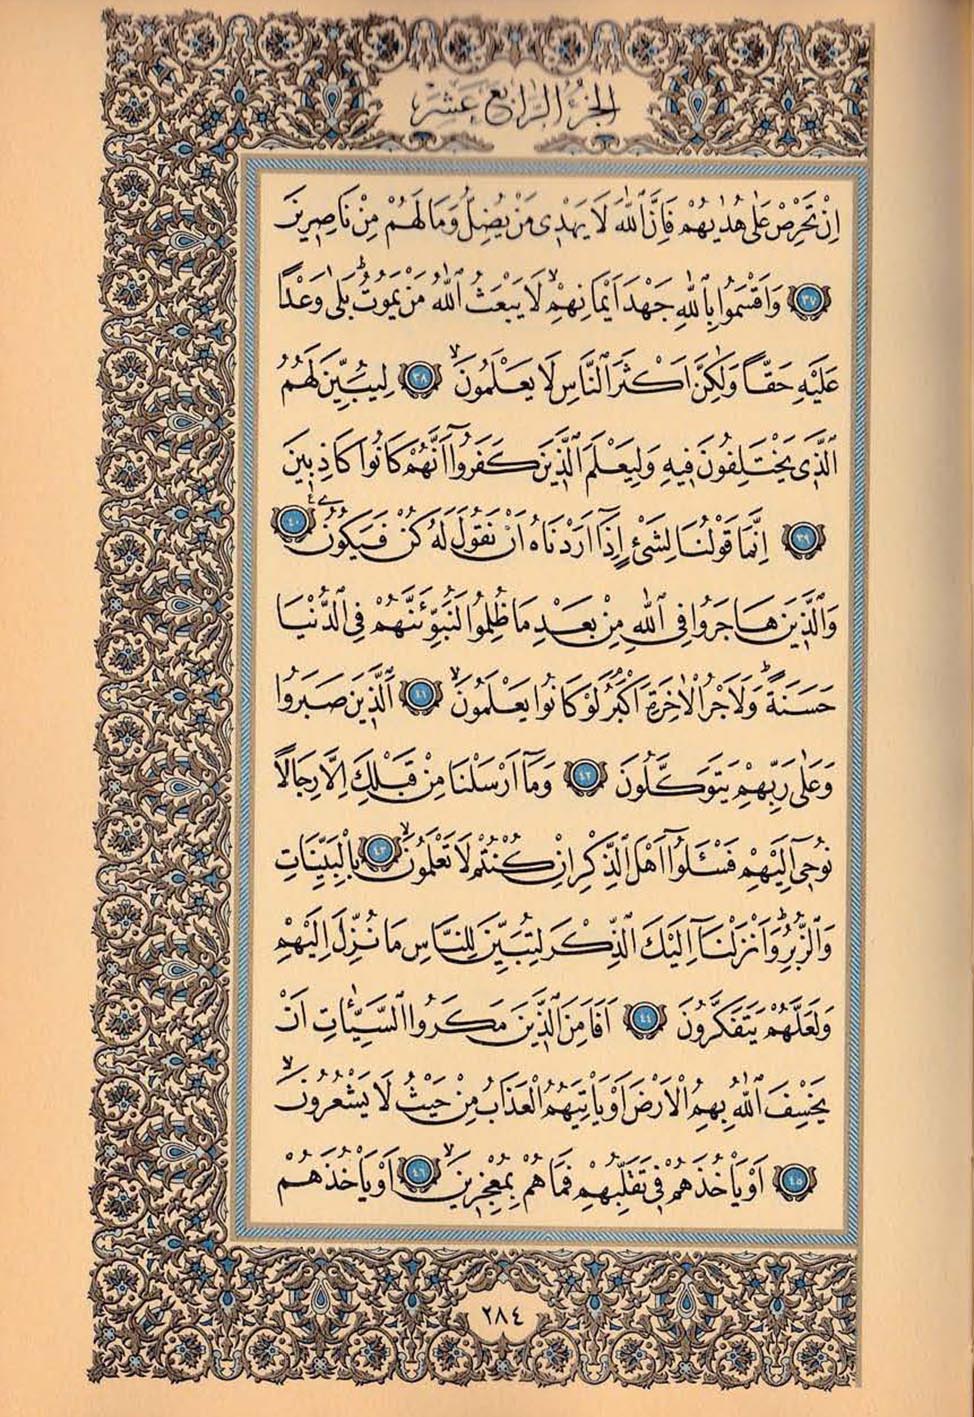 الجزء الرابع عشر
اِنْ تَحْرِصْ عَلٰى هُدٰيهُمْ فَاِنَّ اللّٰهَ لَا يَهْدٖى مَنْ يُضِلُّ وَمَا لَهُمْ مِنْ نَاصِرٖينَ
﴿٣٧﴾ وَاَقْسَمُوا بِاللّٰهِ جَهْدَ اَيْمَانِهِمْۙ لَا يَبْعَثُ اللّٰهُ مَنْ يَمُوتُؕ بَلٰى وَعْدًا
عَلَيْهِ حَقًّا وَلٰكِنَّ اَكْثَرَ النَّاسِ لَا يَعْلَمُونَۙ ﴿٣٨﴾ لِيُبَيِّنَ لَهُمُ
الَّذٖى يَخْتَلِفُونَ فٖيهِ وَلِيَعْلَمَ الَّذٖينَ كَفَرُٓوا اَنَّهُمْ كَانُوا كَاذِبٖينَ
﴿٣٩﴾ اِنَّمَا قَوْلُنَا لِشَىْءٍ اِذَٓا اَرَدْنَاهُ اَنْ نَقُولَ لَهُ كُنْ فَيَكُونُ ﴿٤٠﴾
وَالَّذٖينَ هَاجَرُوا فِى اللّٰهِ مِنْ بَعْدِ مَا ظُلِمُوا لَنُبَوِّئَنَّهُمْ فِى الدُّنْيَا
حَسَنَةًؕ وَلَاَجْرُ الْاٰخِرَةِ اَكْبَرُۘ لَوْ كَانُوا يَعْلَمُونَۙ ﴿٤١﴾ اَلَّذٖينَ صَبَرُوا
وَعَلٰى رَبِّهِمْ يَتَوَكَّلُونَ ﴿٤٢﴾ وَمَٓا اَرْسَلْنَا مِنْ قَبْلِكَ اِلَّا رِجَالًا
نُوحٖٓى اِلَيْهِمْ فَسْـَٔلُٓوا اَهْلَ الذِّكْرِ اِنْ كُنْتُمْ لَا تَعْلَمُونَۙ ﴿٤٣﴾ بِالْبَيِّنَاتِ
وَالزُّبُرِؕ وَاَنْزَلْنَٓا اِلَيْكَ الذِّكْرَ لِتُبَيِّنَ لِلنَّاسِ مَا نُزِّلَ اِلَيْهِمْ
وَلَعَلَّهُمْ يَتَفَكَّرُونَ ﴿٤٤﴾ اَفَاَمِنَ الَّذٖينَ مَكَرُوا السَّيِّـَٔاتِ اَنْ
يَخْسِفَ اللّٰهُ بِهِمُ الْاَرْضَ اَوْ يَاْتِيَهُمُ الْعَذَابُ مِنْ حَيْثُ لَا يَشْعُرُونَۙ
﴿٤٥﴾ اَوْ يَاْخُذَهُمْ فٖى تَقَلُّبِهِمْ فَمَا هُمْ بِمُعْجِزٖينَۙ ﴿٤٦﴾ اَوْ يَاْخُذَهُمْ
٢٨٤